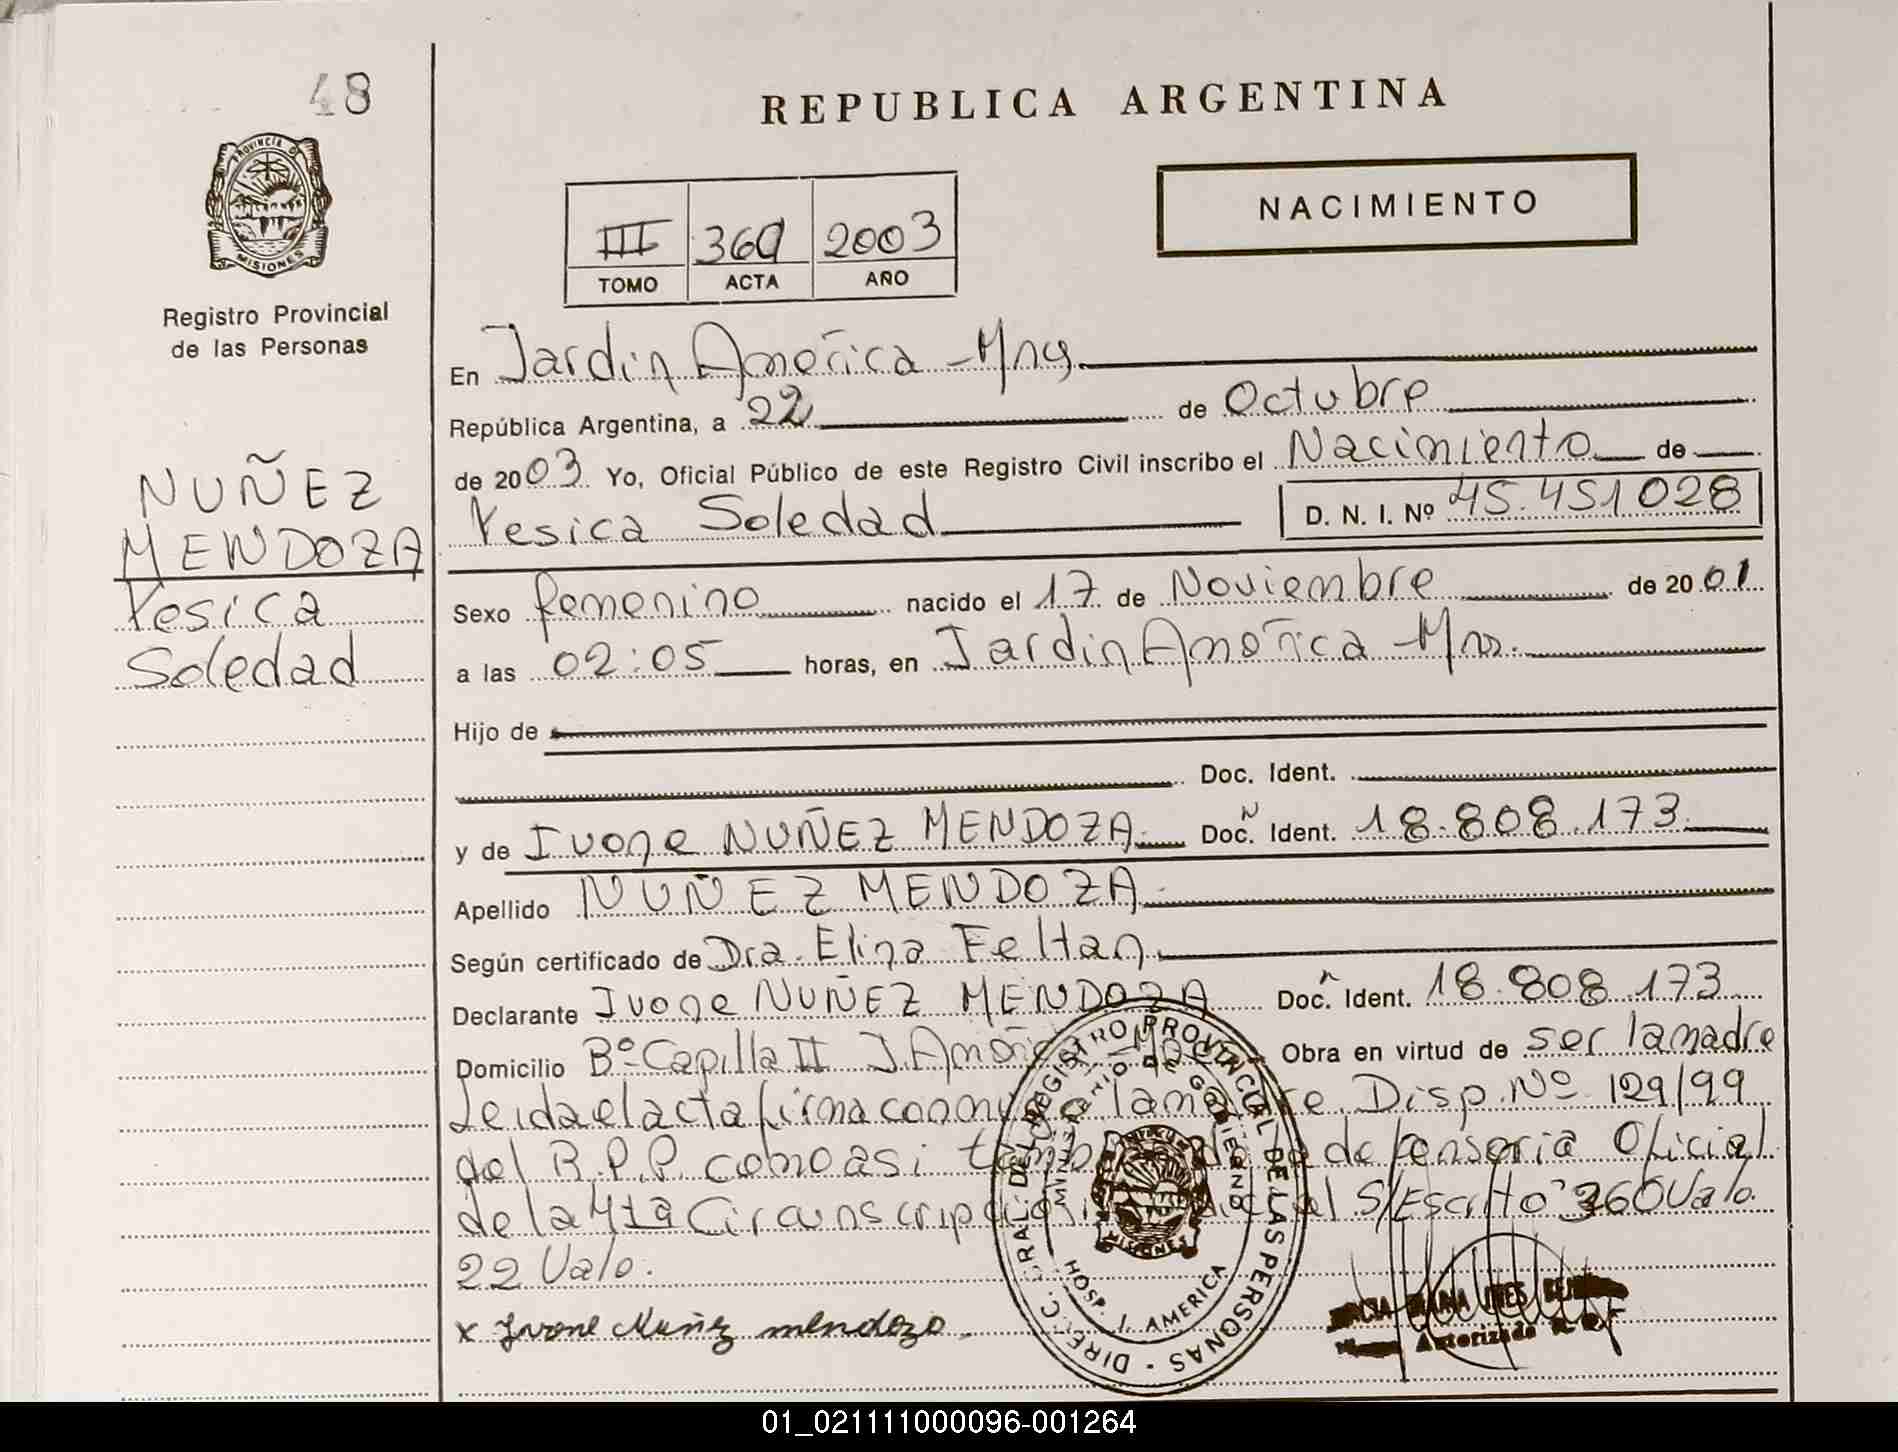 48
REPUBLICA ARGENTINA
PROVINCIA DE
MISIONES
Registro Provincial
de las Personas
NACIMIENTO
III 2003
TOMO ACTA AÑO
En Jardin América - Mns.
República Argentina, a 22 de Octubre
de 2003 Yo, Oficial Público de este Registro Civil inscribo el Nacimiento de
Yesica Soledad D. N. I. Nº 45.451028
NUÑEZ
MENDOZA
Yesica
Soledad
Sexo femenino nacido el 17 de Noviembre de 2001
a las 02:05 horas, en Jardin América - Mns.
Hijo de
Doc. Ident.
y de Ivone NUÑEZ MENDOZA Doc. Ident. 18.808.173
Apellido NUÑEZ MENDOZA
Según certificado de Dra. Elina Feltan
Declarante Ivone NUÑEZ MENDOZA Doc. Ident. 18.808.173
Domicilio Bº Capilla II J. América Obra en virtud de ser la madre
Leida el acta firma conmigo la madre. Disp. Nº 129/99
del R.P.P. como asi de fensoria Oficial
de la 4ta Circunscripción S/Escrito 360 Valo.
22 Valo.
x Ivone Nuñez mendozo
DIRECC. GRAL. DEL REGISTRO PROVINCIAL DE LAS PERSONAS
MINISTERIO DE GOBIERNO
MISIONES
HOSP. J. AMERICA
INES
Autorizada
01_021111000096-001264